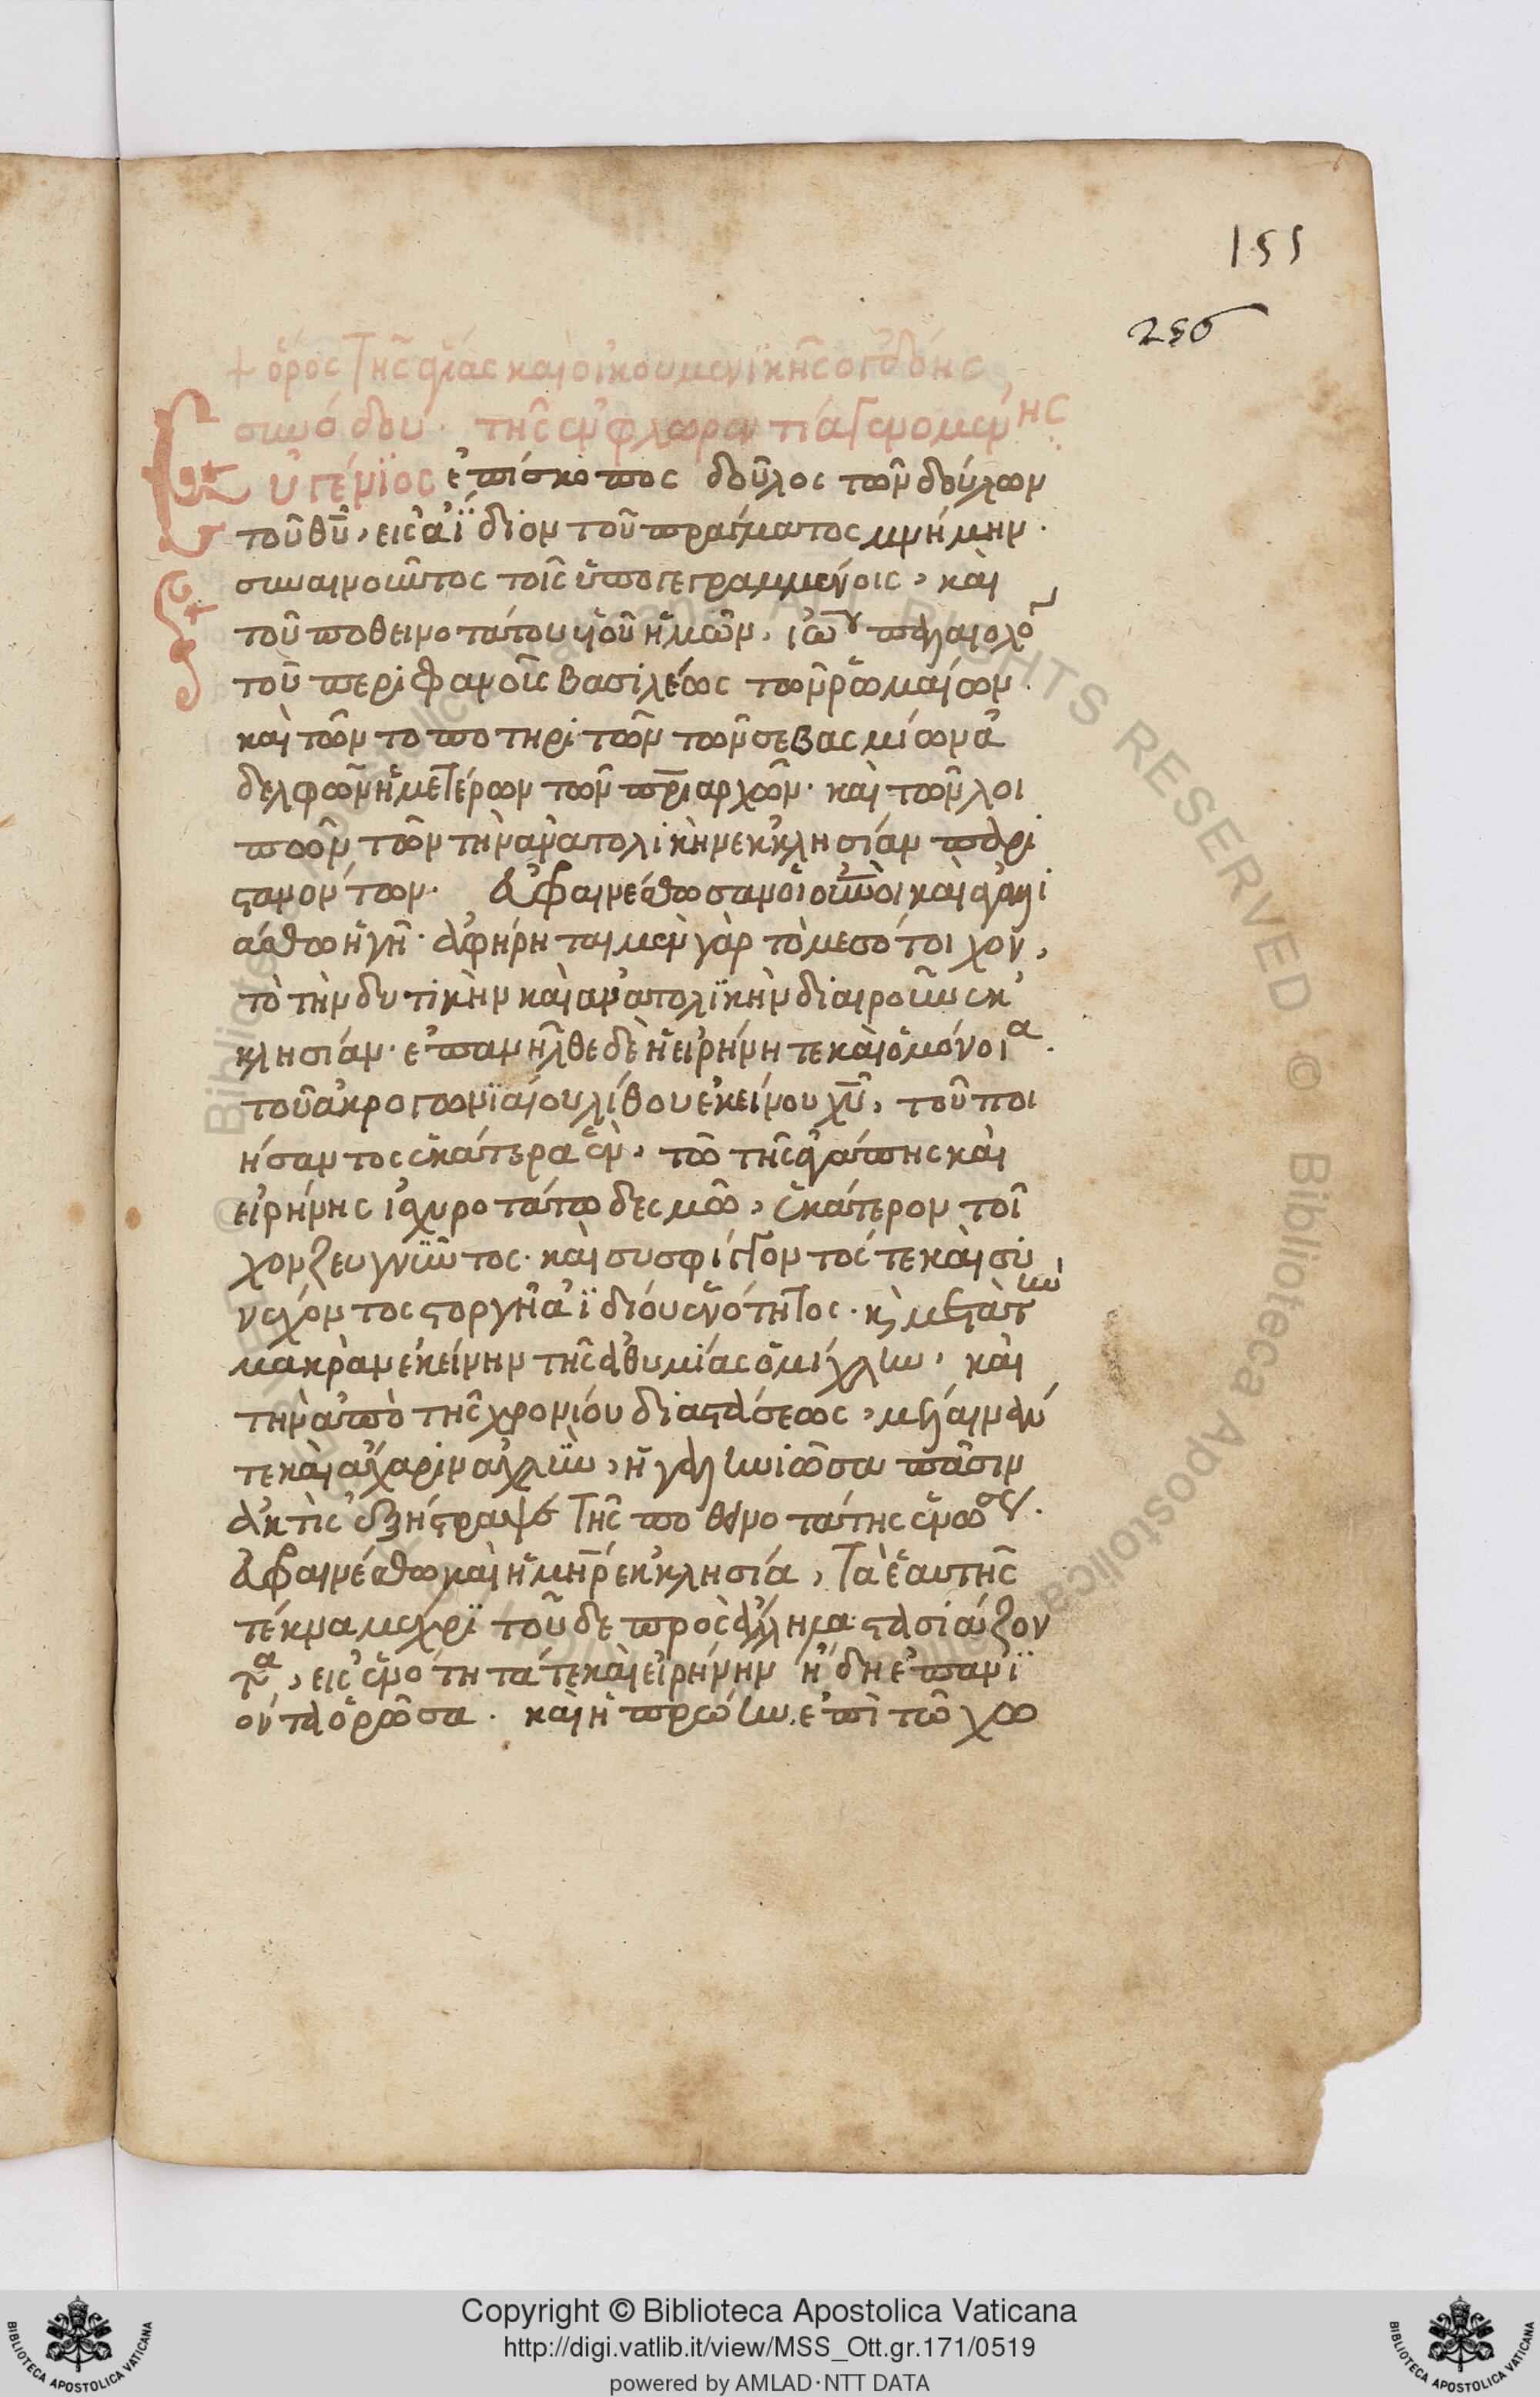 155
256
+ ὅρος τῆς ἁγίας καὶ οἰκουμενικῆς ὀγδόης
συνόδου· τῆς ἐν φλωρεντία γενομένης
Εὐγένϊος ἐπίσκοπος δοῦλος τῶν δούλων
τοῦ θῦ, εἰς ἀΐδιον τοῦ πράγματος μνήμην·
συναινοῦντος τοῖς ὑπογεγραμμένοις, καὶ
τοῦ ποθεινοτάτου υἱοῦ ἡμῶν, ἰω παλαιολο
τοῦ περιφανοῦς βασιλέως τῶν ῥωμαίων·
καὶ τῶν τοποτηριτῶν τῶν σεβασμίων ἀ
δελφῶν ἡμετέρων τῶν πριαρχῶν· καὶ τῶν λοι
πῶν τῶν τὴν ἀνατολικὴν ἐκκλησίαν παρι
στανόντων· Εὐφραινέσθωσαν οἱ οὐνοὶ καὶ ἀγαλλι
άσθω ἡ γῆ· ἀφήρηται μὲν γὰρ τὸ μεσότοιχον,
τὸ τὴν δυτικὴν καὶ ἀνατολϊκὴν διαιροῦν ἐκ
κλησίαν· ἐπανῆλθε δὲ ἡ εἰρήνη τε καὶ ὁμόνοια·
τοῦ ἀκρογωνϊαίου λίθου ἐκείνου χῦ, τοῦ ποι
ήσαντος ἑκάτερα ἓν, τῶ τῆς ἀγάπης καὶ
εἰρήνης ἰσχυροτάτω δεσμῶ, ἑκάτερον τοῖ
χον ζευγνῦντος· καὶ συσφίγγοντός τε καὶ συ
νέχοντος στοργῆ ἀϊδίου ἑνότητος· κ μετὰ τὴν
μακρὰν ἐκείνην τῆς ἀθυμίας ὁμίχλην, καὶ
τὴν ἀπὸ τῆς χρονίου διαστάσεως, μέλαιναν
τε καὶ ἄχαριν ἀχλὺν, ἡ γαληνιῶσα πᾶσιν
ἀκτὶς ἐξήστραψε τῆς ποθεινοτάτης ἑνώσεως·
Εὐφραινέσθω καὶ ἡ μηρ ἐκκλησία, τὰ ἑαυτῆς
τέκνα μέχρϊ τοῦδε πρὸς ἄλληλα στασιάζον
τα, εἰς ἑνότητά τε καὶ εἰρήνην ἤδη ἐπανϊ
όντα ὁρῶσα· καὶ ἡ πρώην ἐπὶ τῶ χω
Copyright © Biblioteca Apostolica Vaticana
http://digi.vatlib.it/view/MSS_Ott.gr.171/0519
powered by AMLAD·NTT DATA